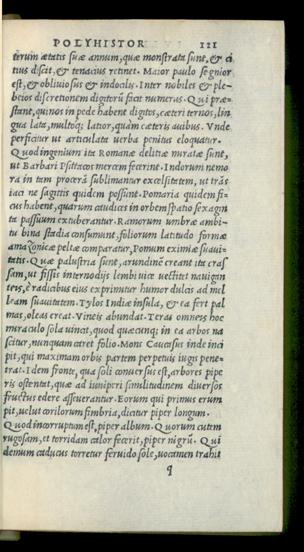 POLYHISTOR 121
terum ætatis suæ annum, quæ monstrata sunt, & ci
tius discit, & tenacius retinet. Maior paulo segnior
est, & obliuiosus & indocilis. Inter nobiles & ple-
beios discretionem digitorũ facit numeras. Qui præ-
stant, quinos in pede habent digitos, cæteri ternos, lin
gua lata, multoq; latior, quàm cæteris auibus. Vnde
perficitur ut articulata uerba penitus eloquatur.
Quod ingenium ita Romanæ delitiæ miratæ sunt,
ut Barbari Psittacos mercem fecerint. Indorum nemo
ra in tam proceră sublimantur excelsitatem, ut trās
iaci ne sagittis quidem possint. Pomaria quidem fi-
cus habent, quarum caudices in orbem spatio sexagin
ta passuum extuberantur. Ramorum umbræ ambi-
tu bina stadia consumunt. foliorum latitudo formæ
amazonicæ peltæ comparatur, Pomum eximiæ suaui-
tatis. Quæ palustria sunt, arundinẽ creant ita cras
sam, ut fissis internodijs lembi uice uectitet nauigan
teis, è radicibus eius exprimitur humor dulcis ad mel
leam suauitatem. Tylos Indiæ insula, & ea fert pal
mas, oleas creat. Vineis abundat. Teras omneis hoc
miraculo sola uincit, quod quæcunq; in ea arbos na
scitur, nunquam caret folio. Mons Caucasus inde inci
pit, qui maximam orbis partem perpetuis iugis pene-
trat. Idem fronte, qua soli conuersus est, arbores pipe
ris ostentat, quæ ad iuniperi similitudinem diuersos
fructus edere asseuerant. Eorum qui primus erum
pit, uelut corilorum fimbria, dicitur piper longum.
Quod incorruptum est, piper album. Quorum cutem
rugosam, et torridam calor fecerit, piper nigrũ. Qui
demum caducus torretur feruido sole, uocamen trahit
q